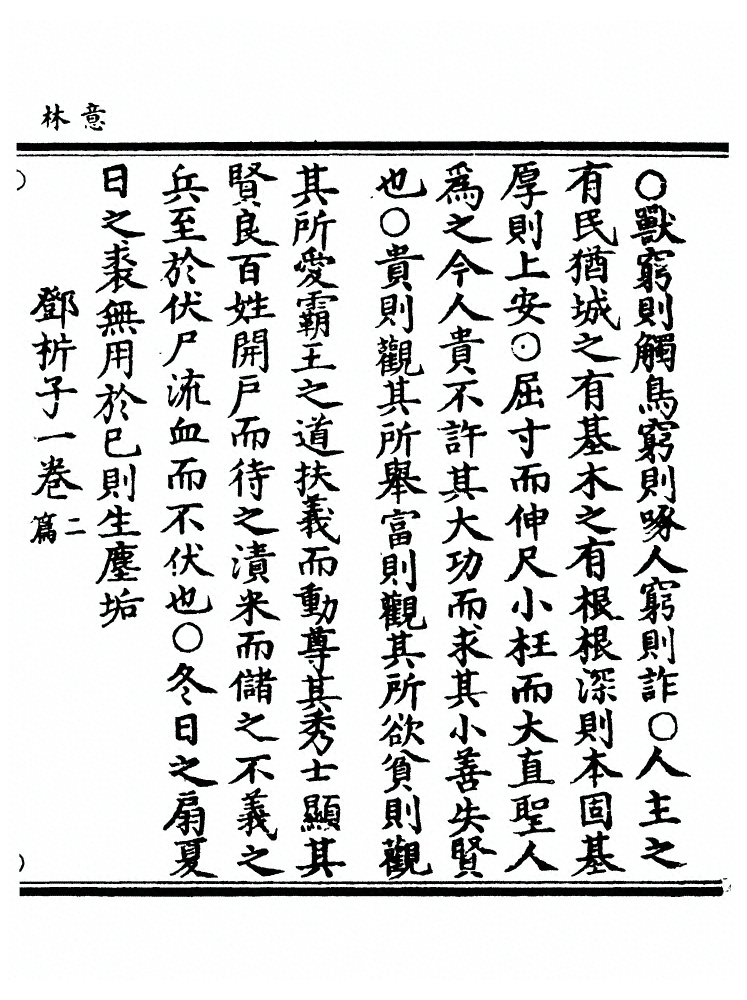 意林
○獸窮則觸鳥窮則啄人窮則詐○人主之
有民猶城之有基木之有根根深則本固基
厚則上安○屈寸而伸尺小枉而大直聖人
為之今人貴不許其大功而求其小善失賢
也○貴則觀其所舉富則觀其所欲貧則觀
其所愛霸王之道扶義而動尊其秀士顯其
賢良百姓開戶而待之漬米而儲之不義之
兵至於伏尸流血而不伏也○冬日之扇夏
日之裘無用於已則生塵垢
鄧析子一卷二篇